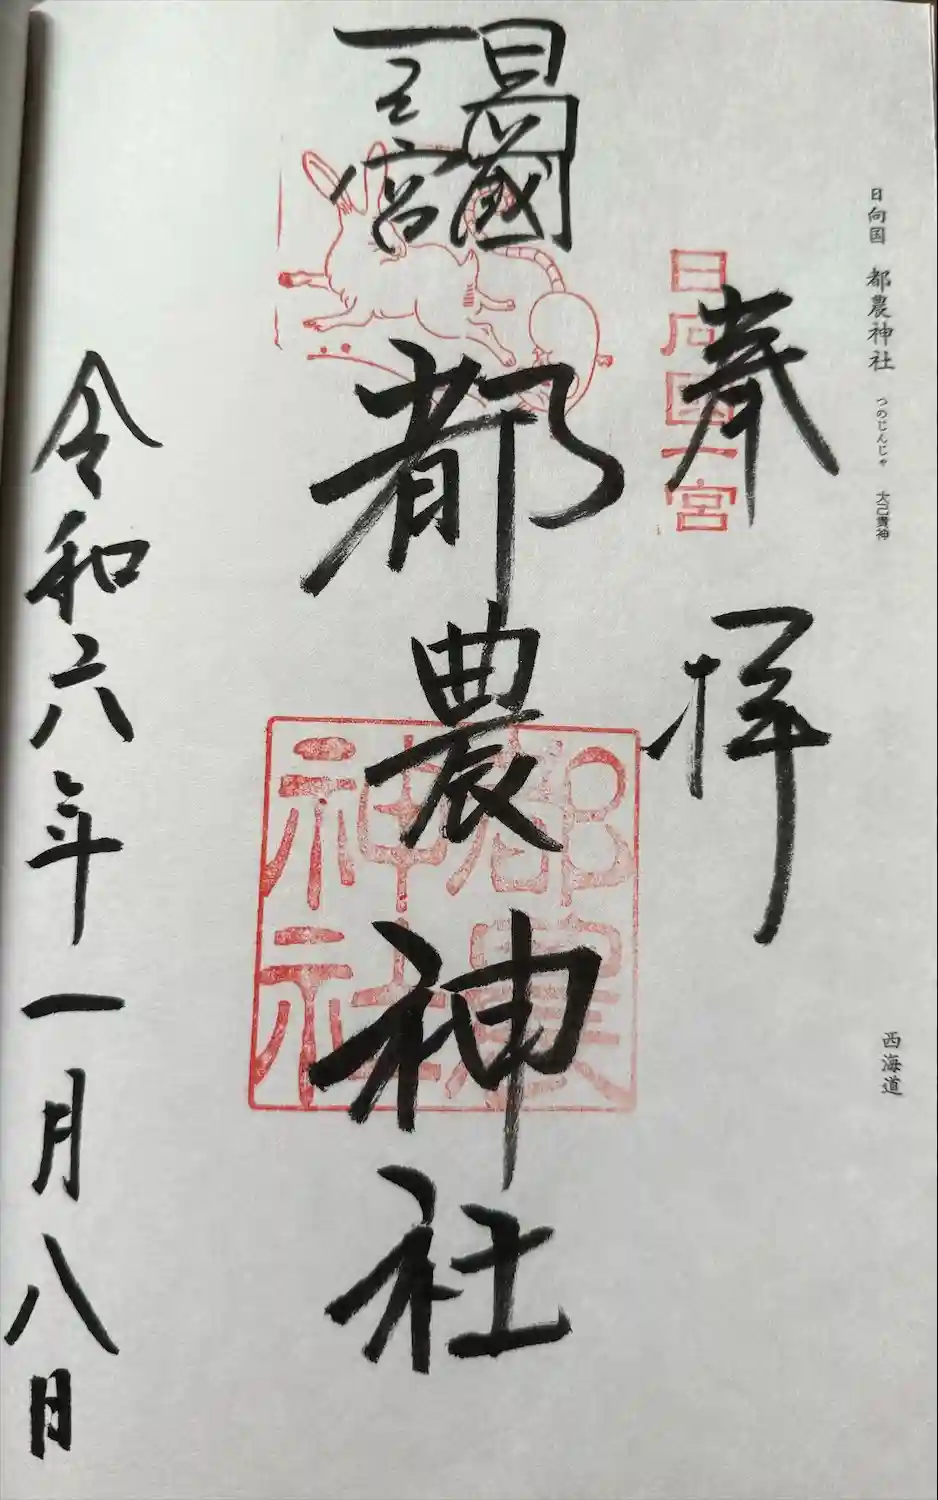 日向国 都農神社 つのじんじゃ 大己貴神
西海道
奉拝
日向国一宮
日向國
一之宮
都農神社
都農
神社
令和六年一月八日